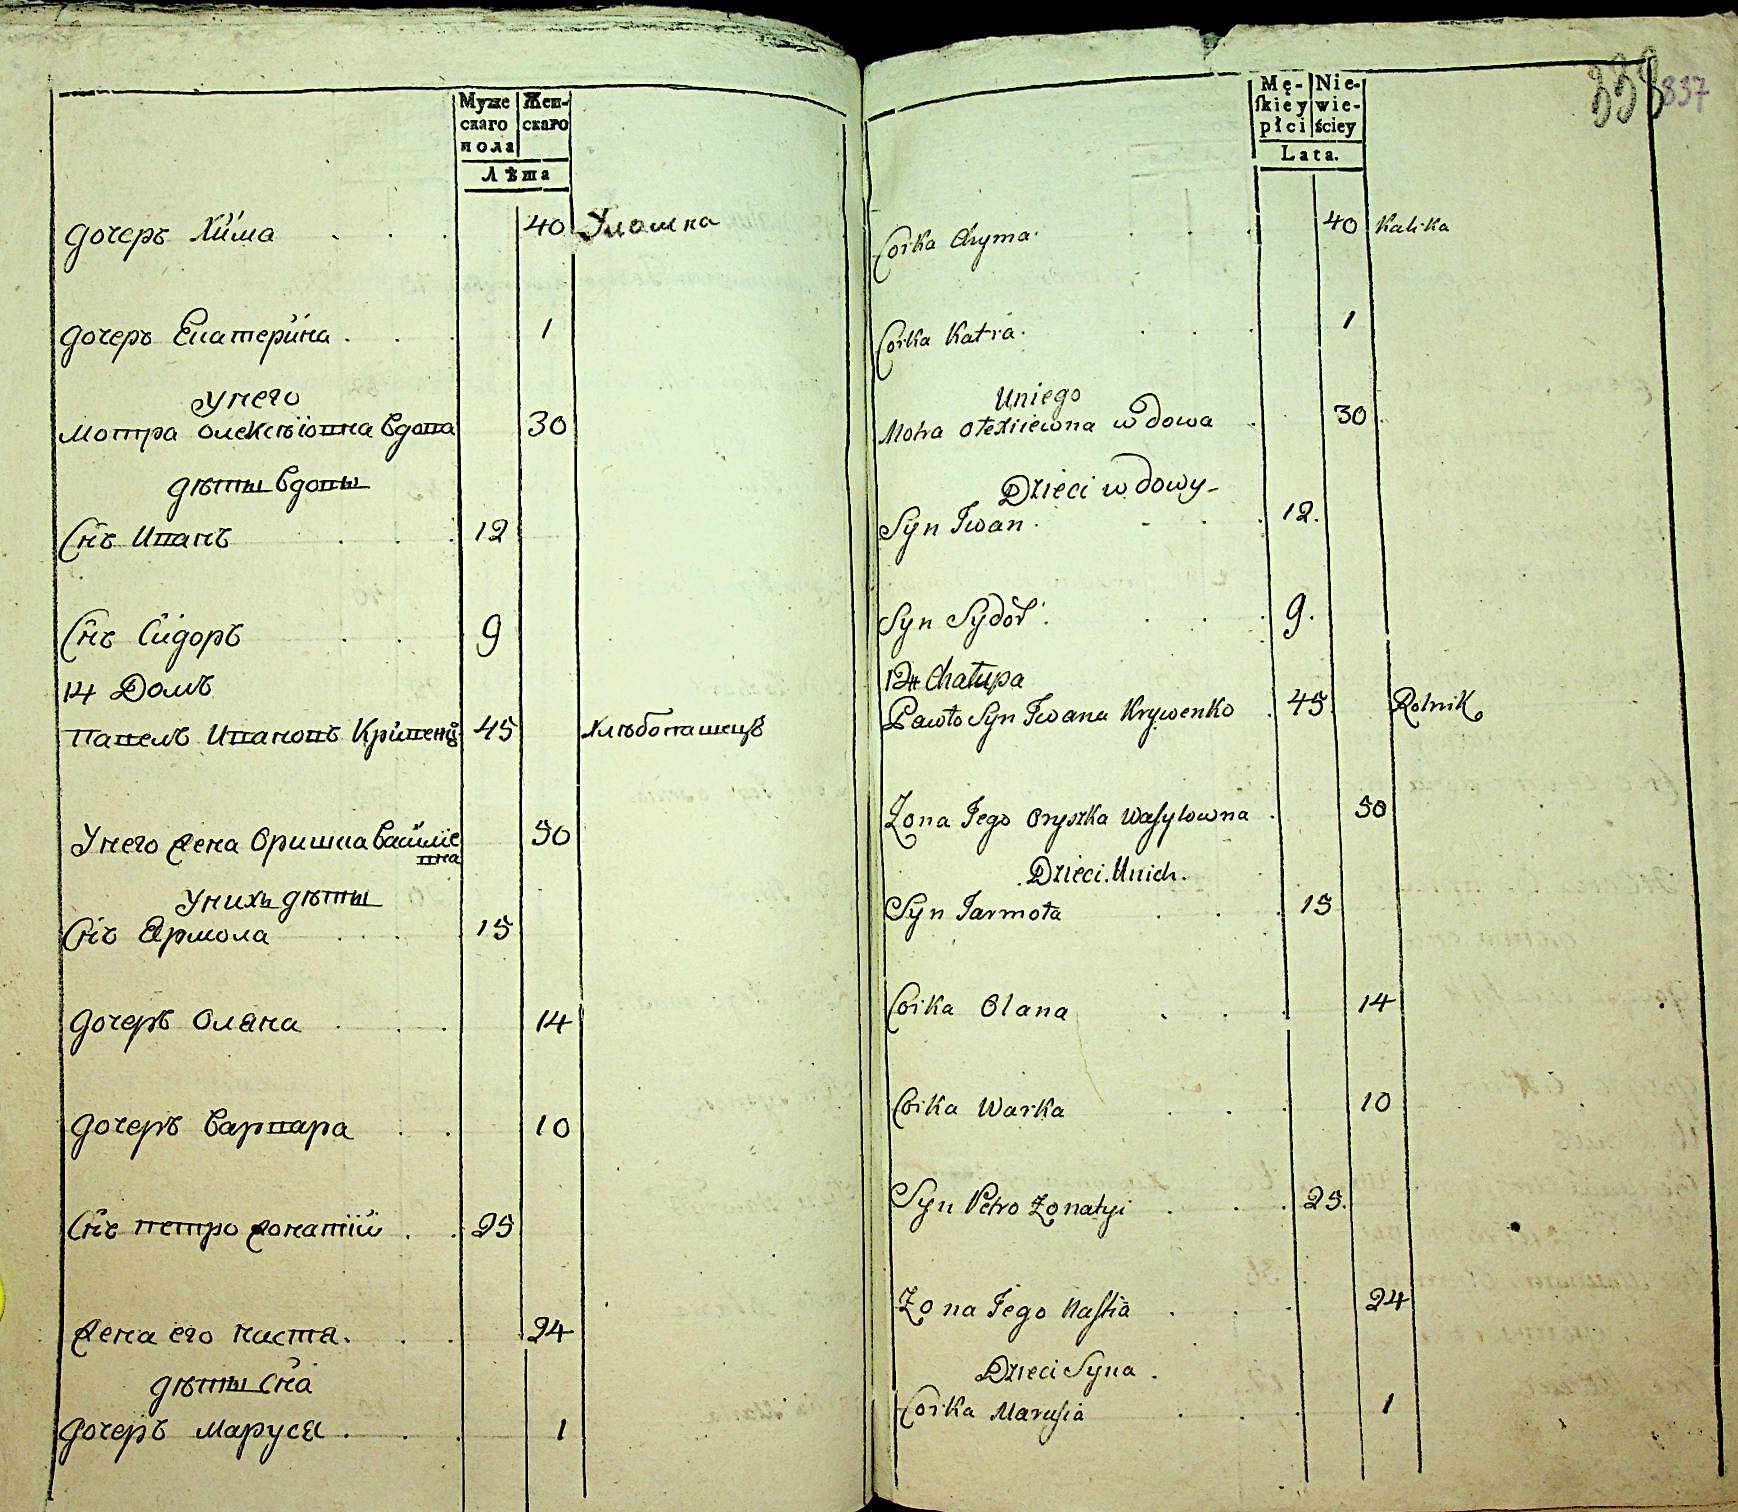 Муже
скаго
пола
Жен-
скаго
Лѣта
дочеръ Хима . . . 40
дочеръ Екатерина . . . 1
унего
мотра олексѣювна вдова 30
дѣты вдовы
Снъ Иванъ . . 12
Снъ Сидоръ . . 9
14 Домъ
Павелъ Ивановъ Кривенко 45 Хлѣбопашецъ
Унего жена Оришка василіе
вна 50
Унихъ дѣты
Снъ Ярмола . . . 15
дочеръ Оляна . . . 14
дочеръ Варвара . . 10
Снъ петро жонатій . . 25
жена его настя . . . 24
дѣты Сна
дочеръ Маруся . . . 1
338 837
Mę-
skiey
płci
Nie-
wie-
ściey
Lata.
Corka Chyma . . . 40 Kalika
Corka Katra . . . 1
Uniego
Motra Olexiiewna wdowa . 30
Dzieci wdowy
Syn Iwan . . . 12.
Syn Sydor . . . 9.
14 Chałupa
Pawło Syn Iwana Krywenko . 45 Rolnik
Żona Iego Oryszka Wasylowna . 50
Dzieci Unich.
Syn Iarmoła . . . 15
Corka Olana . . . 14
Corka Warka . . . 10
Syn Petro Żonatyi . . . 25.
Żona Iego Nastia . . . 24
Dzieci Syna .
Corka Marusia . . . 1